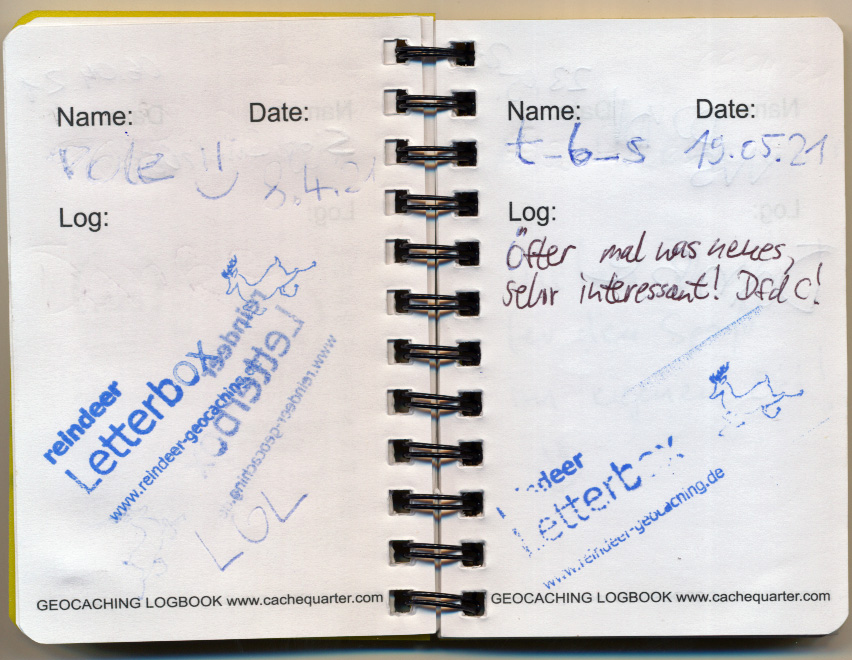 Name: Date:
:)
8.4.21
Log:
reindeer
Letterbox
www.reindeer-geocaching.de
reindeer
Letterbox
www.reindeer-geocaching.de
LOL
GEOCACHING LOGBOOK www.cachequarter.com
Name: Date:
t_b_s 19.05.21
Log:
Öfter mal was neues,
sehr interessant! DfdC!
reindeer
Letterbox
www.reindeer-geocaching.de
GEOCACHING LOGBOOK www.cachequarter.com